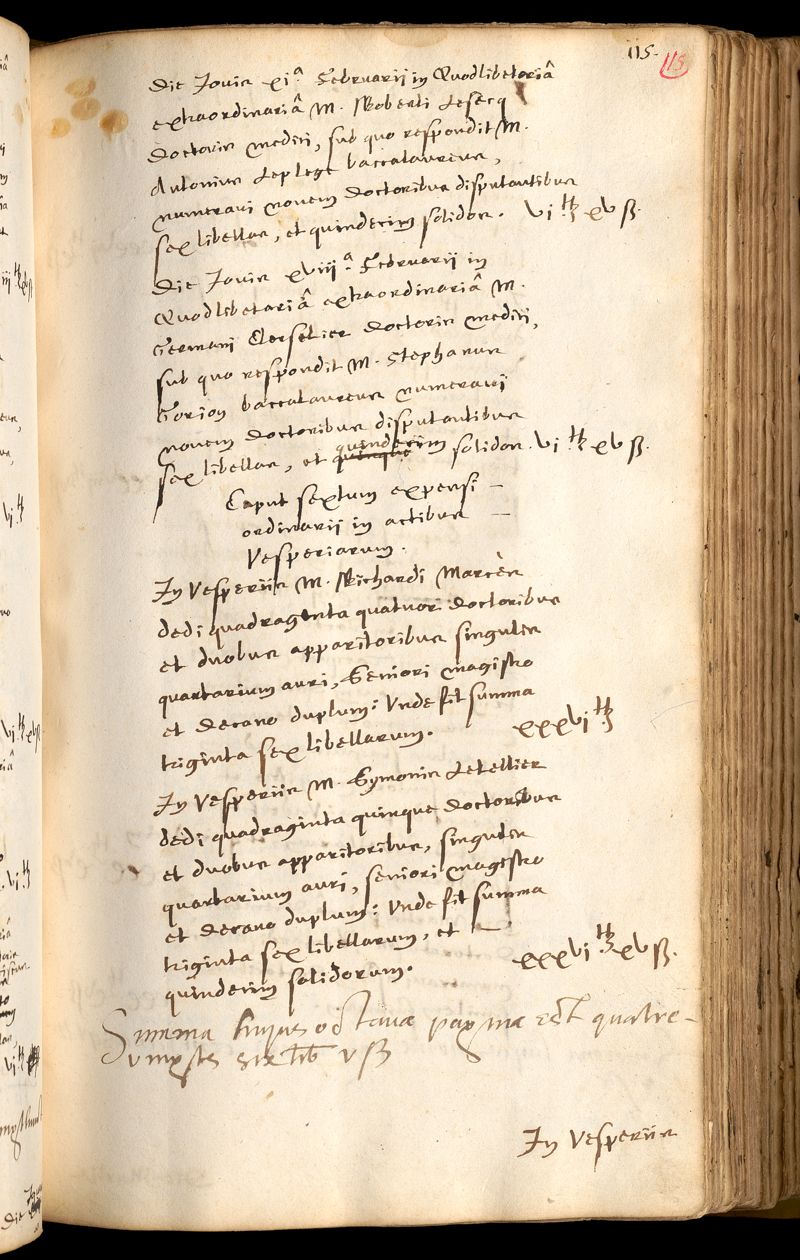 115.
115
Die Jovis xiª Februarii in Quodlibetariâ
extraordinariâ M. Roberti Lesecq
doctoris medici, sub quo respondit M.
Antonius Leplege baccalaureus,
numeravi novem doctoribus disputantibus
sex libellas, et quindecim solidos. vi ₶ xv ß.
Die Jovis xviiiª Februarii in
Quodlibetariâ extraordinariâ M.
Germani Clerselier doctoris medici,
sub quo respondit M. Stephanus
Gorion baccalaureus numeravi
novem doctoribus disputantibus
sex libellas, et quinque quindecim solidos. vi ₶ xv ß.
Caput sextum expensi
ordinarii in actibus
Vesperiarum.
In Vesperiis M. Richardi Marcès
dedi quadraginta quatuor doctoribus
et duobus apparitoribus singulis
quartarium auri, Seniori magistro
et decano duplum: Unde fit summa
triginta sex libellarum. xxxvi ₶
In Vesperiis M. Symonis Letellier
dedi quadraginta quinque doctoribus
et duobus apparitoribus, singulis
quartarium auri, seniori magistro
et decano duplum: Unde fit summa
triginta sex libellarum, et
quindecim solidorum. xxxvi ₶ xv ß.
Summa hujus octavæ paginæ est quatre-
vingts six lb v ß
In Vesperiis